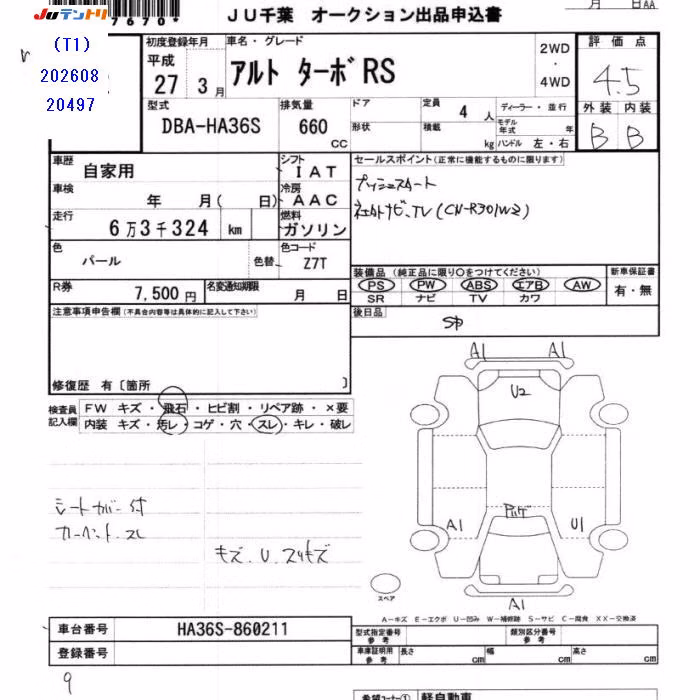 JUテントリ
7670
(T1)
202608
20497
JU千葉 オークション出品申込書
月 日AA
初度登録年月
平成
27 3 月
車名・グレード
アルト ターボRS
2WD
・
4WD
評価点
4.5
外装 内装
B B
型式
DBA-HA36S
排気量
660
CC
ドア
形状
定員
4 人
積載
kg
ディーラー・並行
モデル年式 年
ハンドル 左・右
車歴
自家用
シフト
IAT
車検
年 月( 日)
冷房
AAC
走行
6万3千324 km
燃料
ガソリン
セールスポイント(正常に機能するものに限ります)
プッシュスタート
TV(CN-R301WZ)
色
パール
色替
色コード
Z7T
R券
7,500円
名変通知期限
月 日
装備品(純正品に限り○をつけてください)
PS PW ABS エアB AW
SR ナビ TV カワ
新車保証書
有・無
後日品
注意事項申告欄(不具合内容等は具体的に記入して下さい)
修復歴 有〔箇所 〕
検査員記入欄
FW キズ・飛石・ヒビ割・リペア跡・×要
内装 キズ・汚レ・コゲ・穴・スレ・キレ・破レ
シートカバー付
キズ、U、スリキズ
A1 A1
U2
A1 U1
A1
スペア
A-キズ E-エクボ U-凹み W-補修跡 S-サビ C-腐食 XX-交換済
車台番号
HA36S-860211
登録番号
型式指定番号
参考
類別区分番号
参考
車庫証明用
参考
長さ cm
幅 cm
高さ cm
9
希望コーナー①
軽自動車